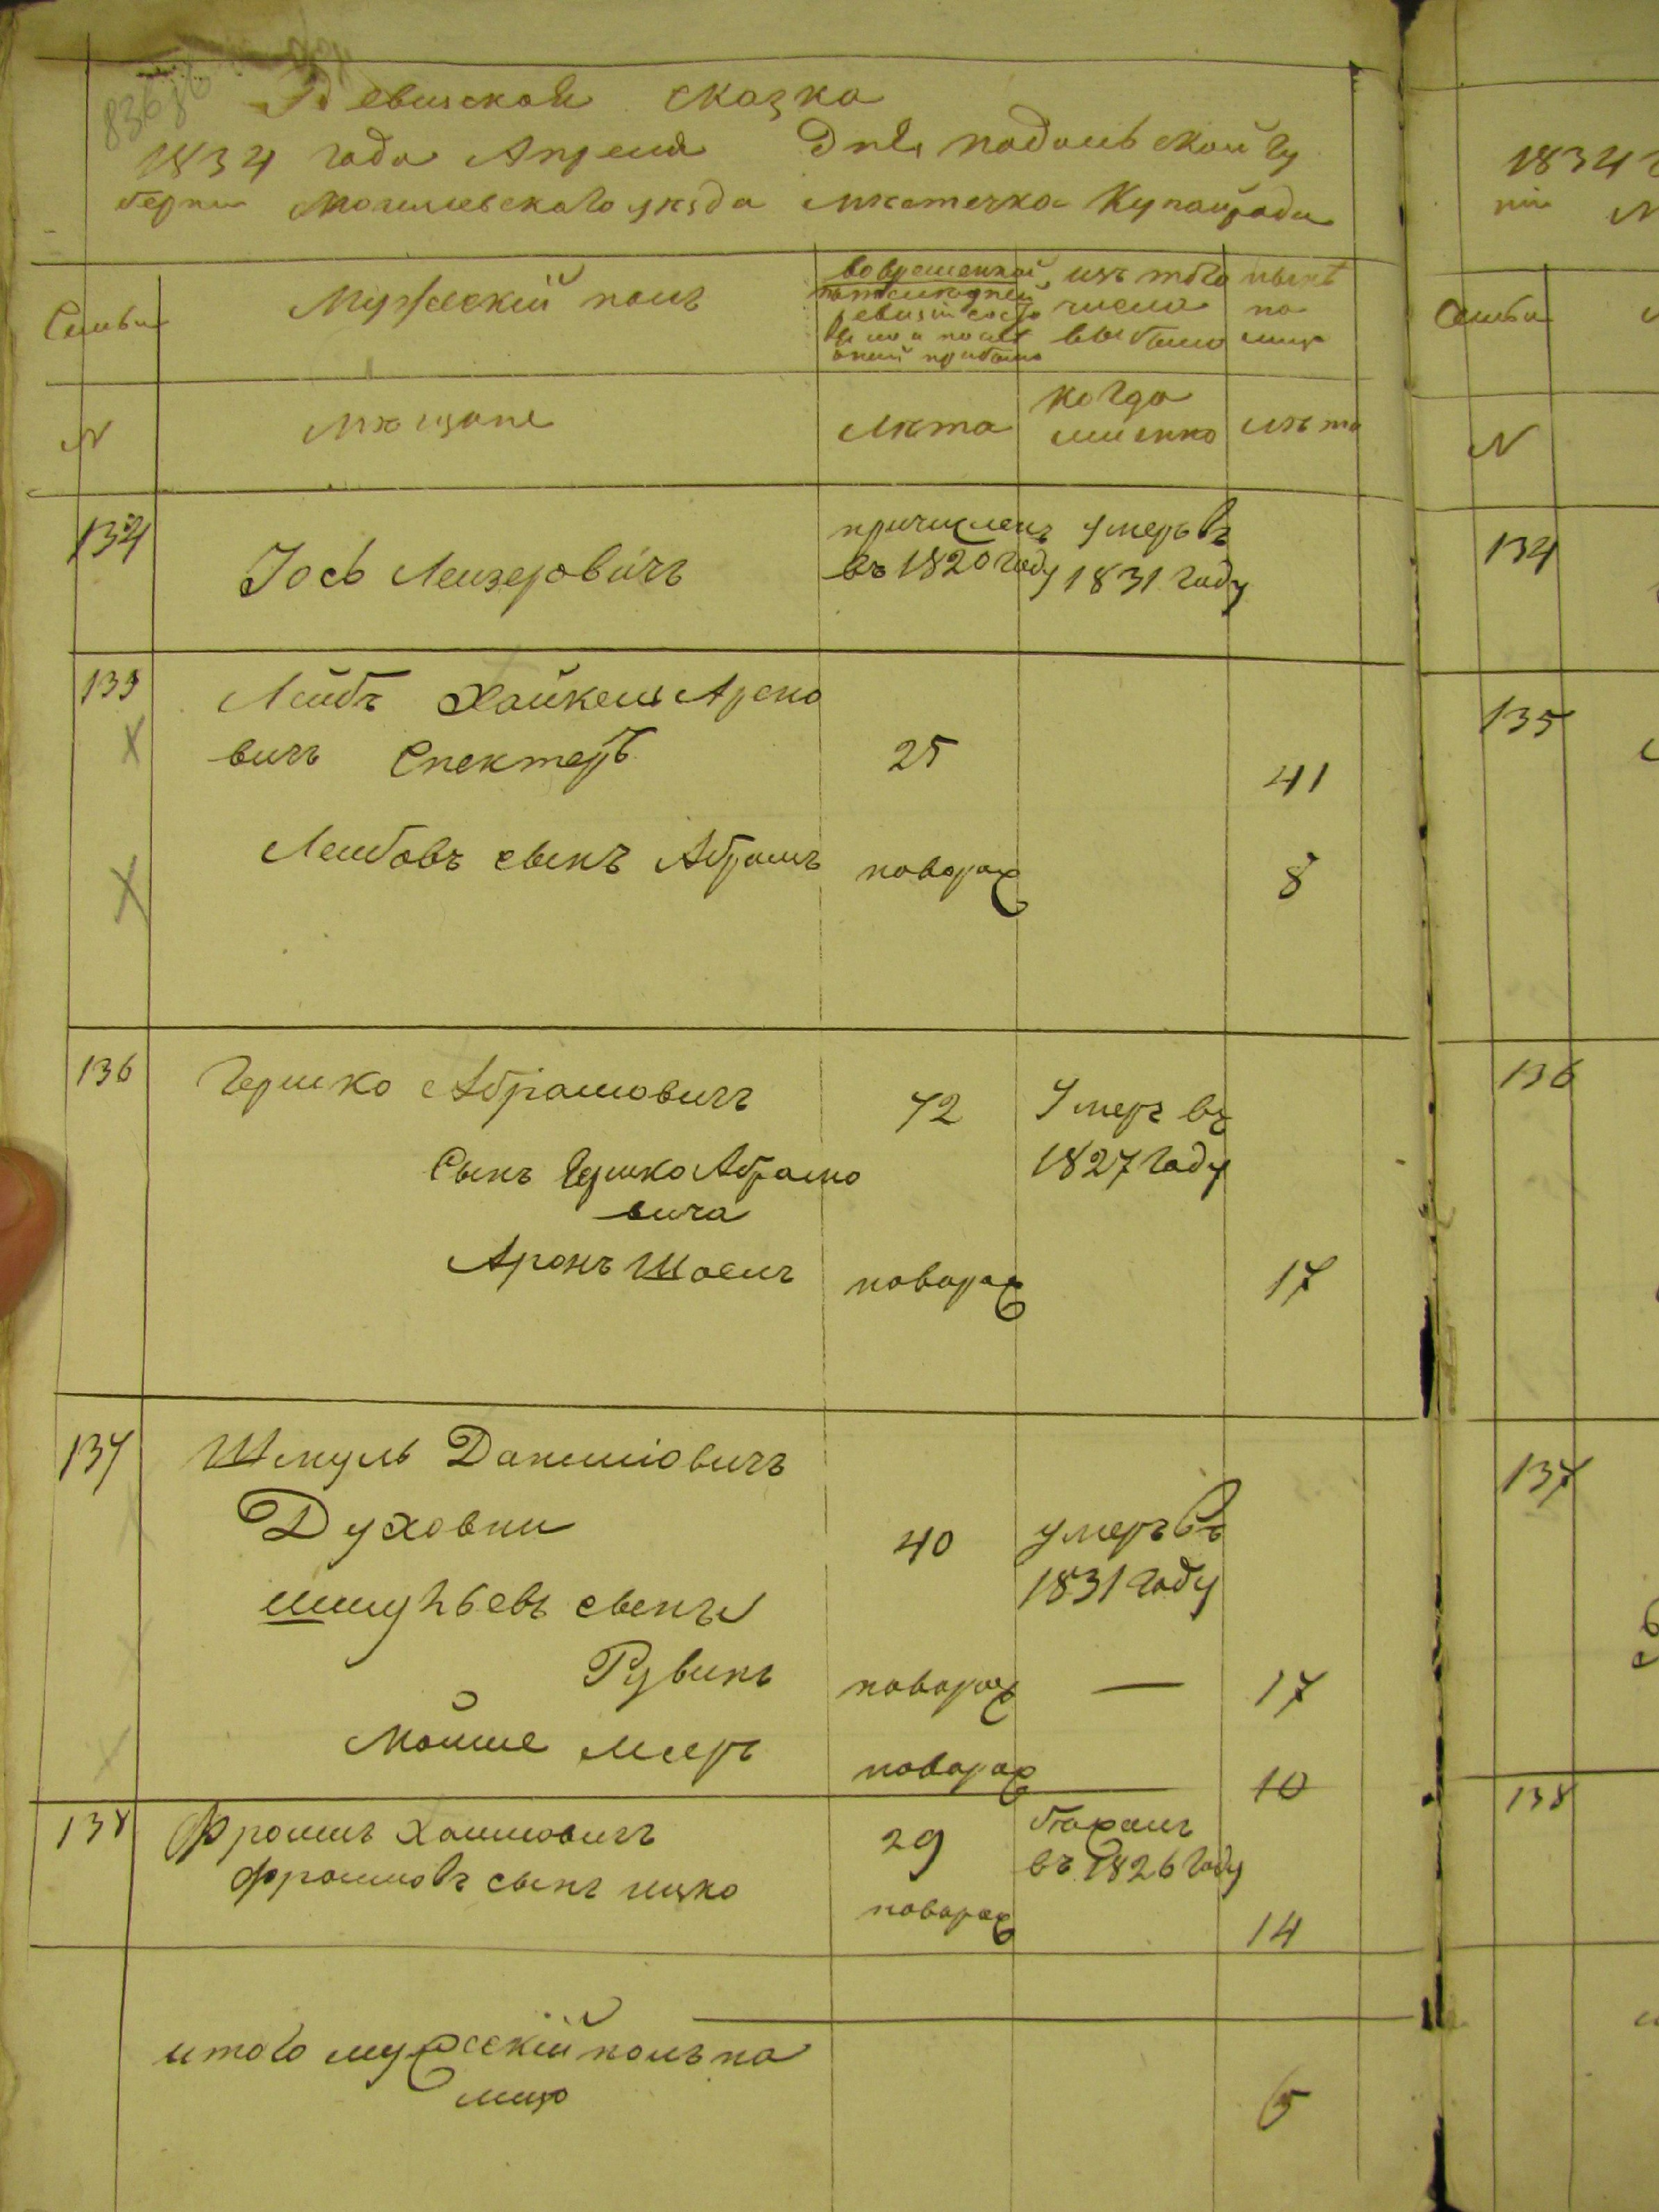 Ревизская сказка
1834 года Апреля Дня подольской гу
бернии могилевскаго уезда местечка Купайграда
Семьи
Мужеский полъ
изъ того
числа
выбыло
ныне
на
лицо
N
мещане
лета
когда
именно
лета
134
Іось Лейзеровичъ
причисленъ
въ 1820 году
умеръ въ
1831 году
135
Лейбъ Хайкель Ароно
вичъ Спекторъ
25
41
Лейбовъ сынъ Абрамъ
новорож
8
136
Гершко Абрамовичъ
72
Умеръ въ
1827 году
Сынъ Гершко Абрамо
вича
Аронъ Шоелъ
новорож
17
137
Шмуль Даниліовичъ
Духовни
40
умеръ въ
1831 году
шмульевъ сынъ
Рувинъ
новорож
—
17
Мойше Меер
новорож
10
138
Фроимъ Хаимовичъ
29
въ 1826 году
Фроимовъ сынъ ицко
новорож
14
итого мужескій полъ на
лицо
5
1834
N
134
135
136
137
138